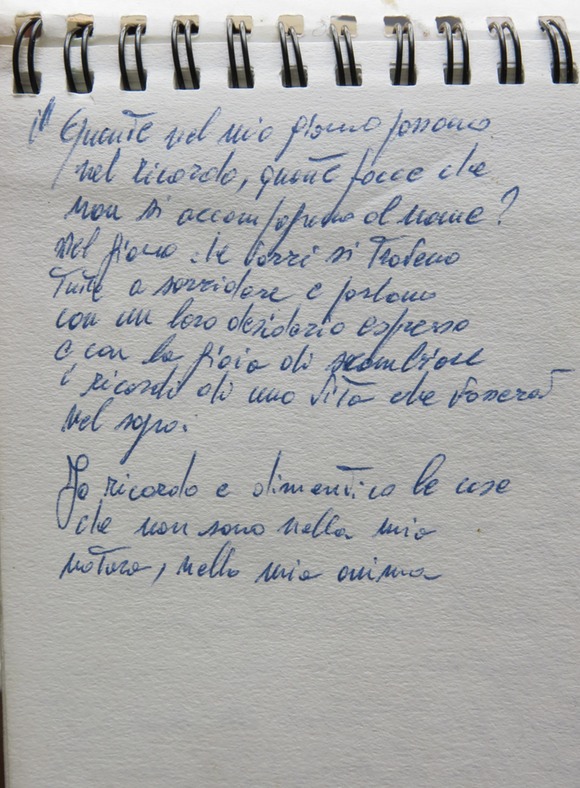 Quante nel mio giorno passano
nel ricordo, quante facce che
non si accompagnano al nome?
Nel giorno che vorrei si trovano
tutte a sorridere e parlano
con un loro desiderio espresso
e con la gioia di scambiare
i ricordi di una vita che
nel sogno.
Io ricordo e dimentico le cose
che non sono nella mia
natura, nella mia anima